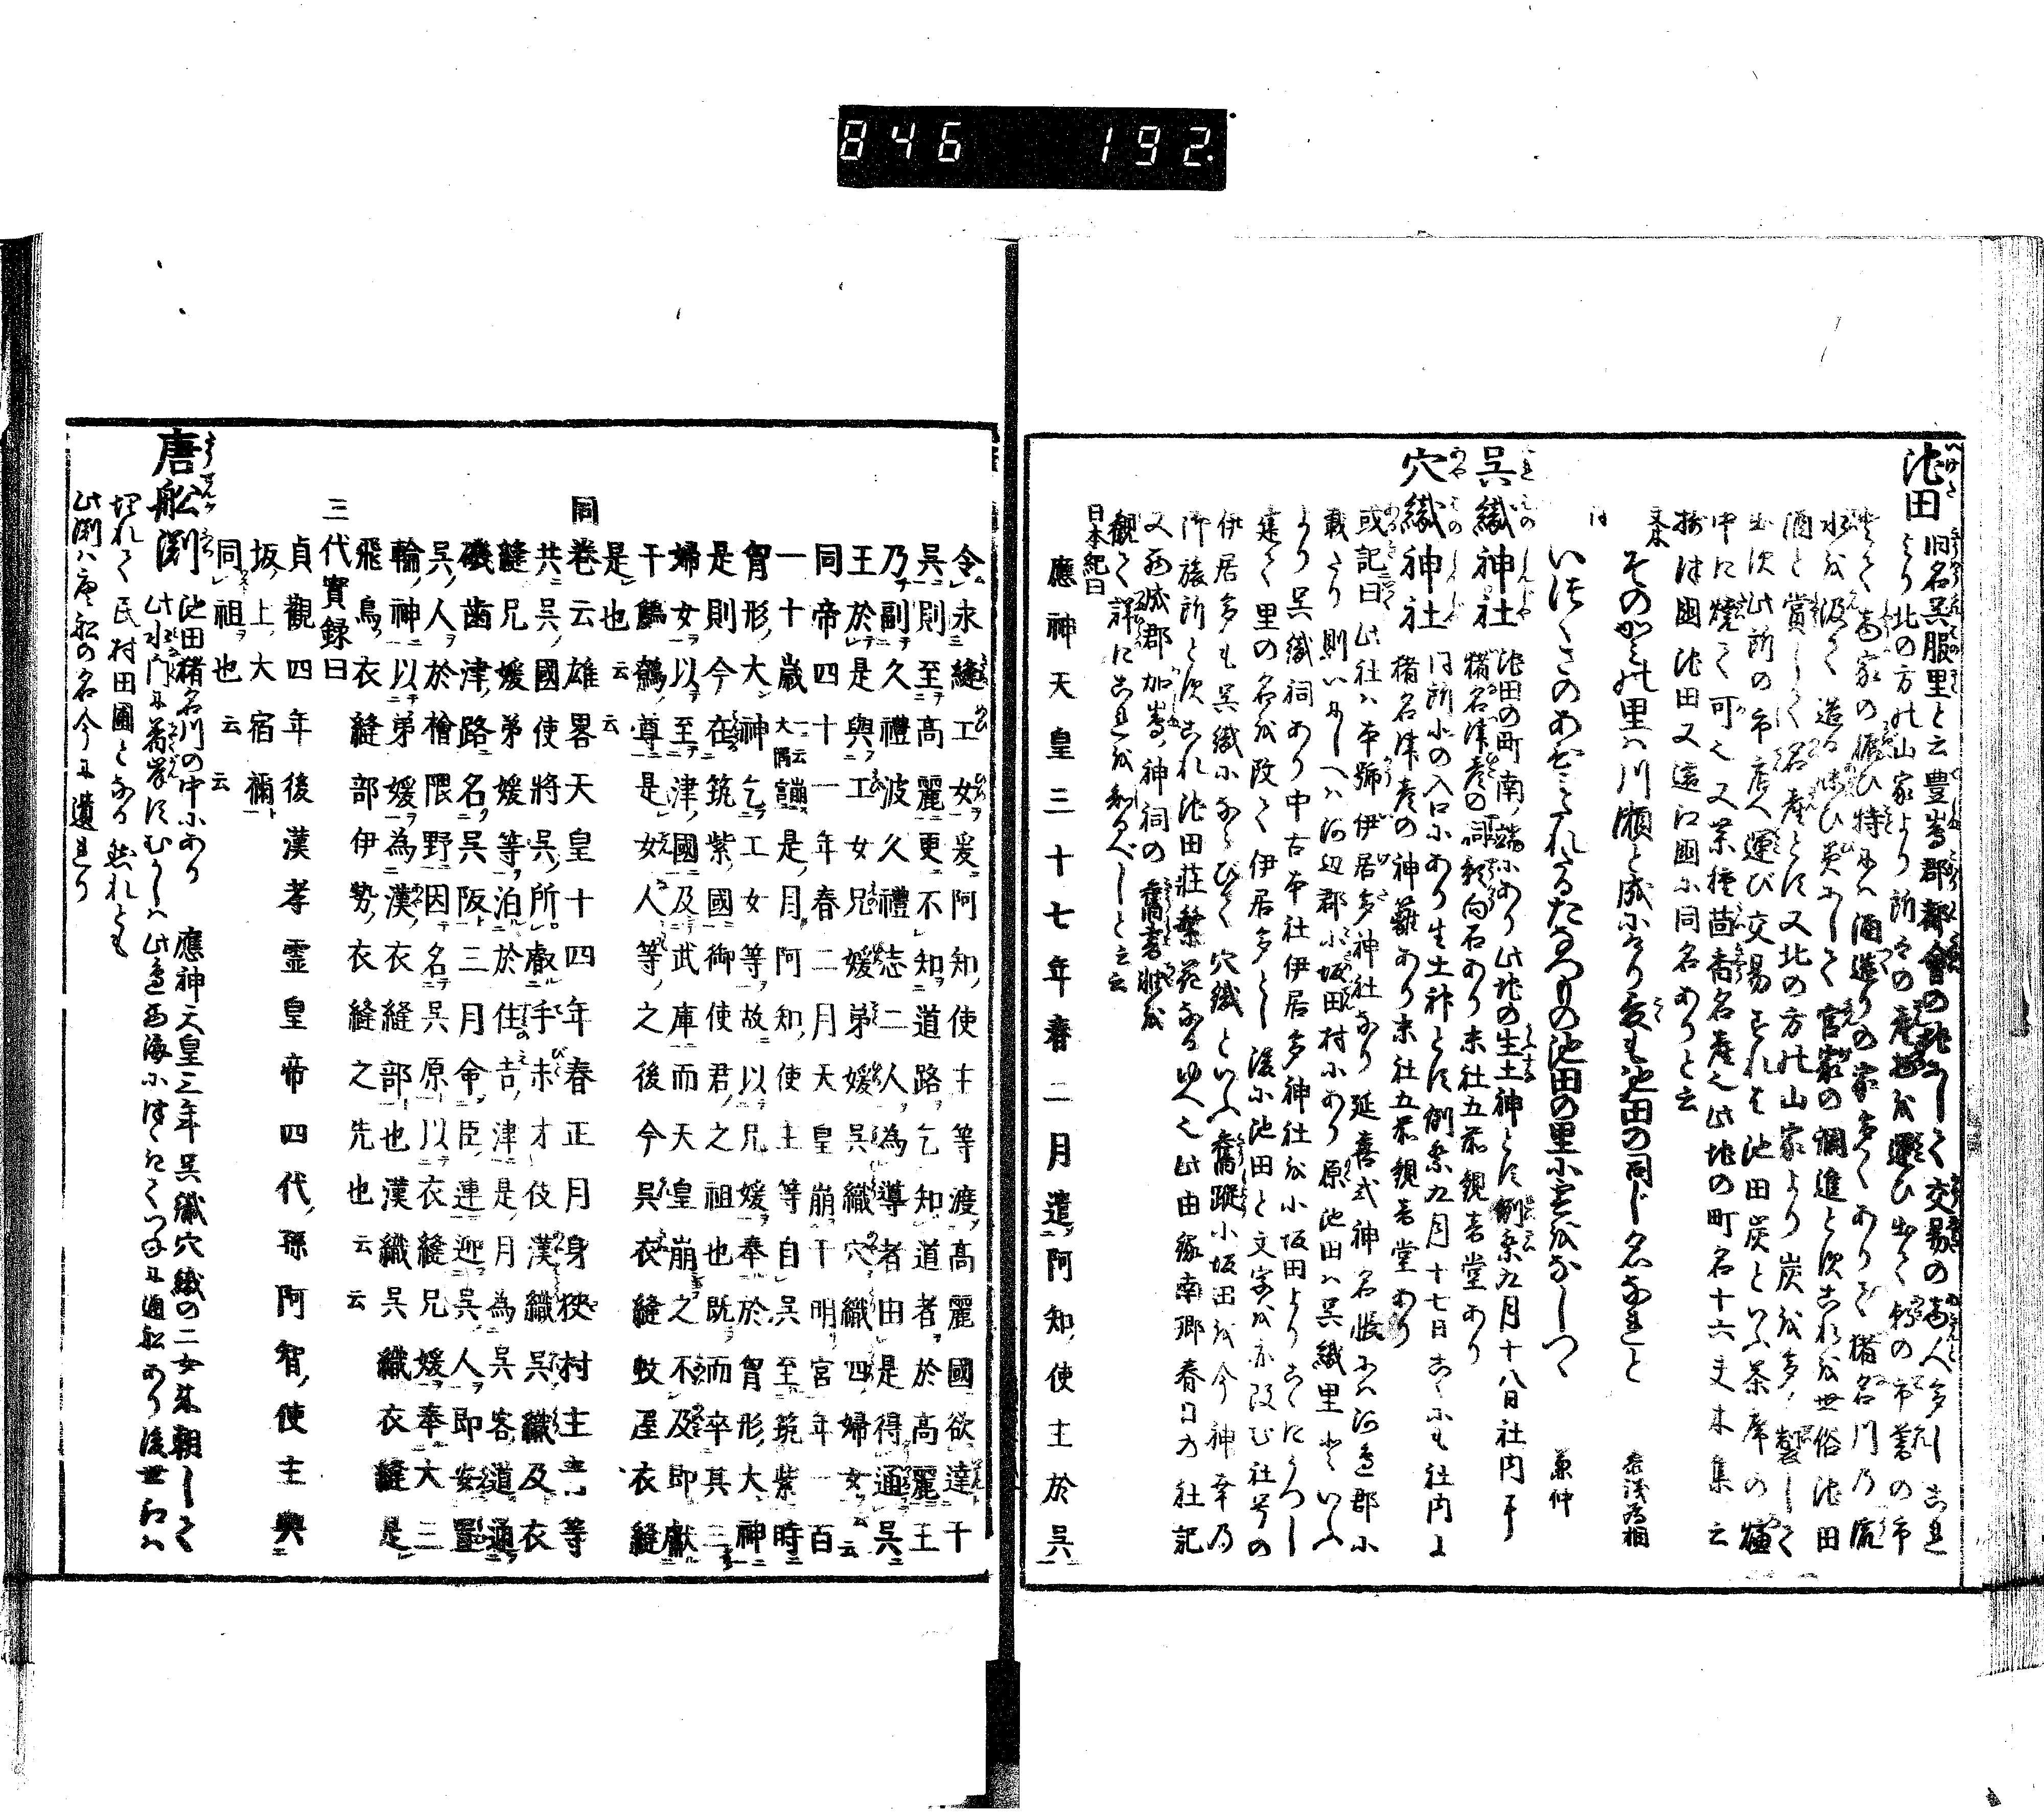 846 192.
池田 旧名呉服里と云豊嶋郡都會の地にして交易の商人多しこれ
より北の方の山家より所々の産物を運び出て朝の市暮の市
とて商家の賑ひ特には酒造りの家多くありて猪名川の流
水を汲て造る味ひ美にして官家の調進とすこれを世俗池田
酒と賞しく名産とす又北の方の山家より炭を多く製して
出す此所の市店へ運び交易すれを池田炭といふ茶席の爐
中に焼て可之又菜種茴香名産之此地の町名十六丈木集云
摂津國池田又遠江國に同名ありと云
その里ハ川瀬と成にけり爰も池田の同じ名なれと
為相
いほくさのあをみ
池田の里に
兼仲
呉織神社 池田の町南端にあり此地の生土神とす例祭九月十八日社内に
猪名津彦の祠影向石あり末社五前観音堂あり
穴織神社 同所北の入口にあり生土神とす例祭九月十七日こゝにも社内に
猪名津彦の神籬あり末社五前観音堂あり
或記曰此社ハ本號伊居多神社なり延喜式神名帳にハ河邉郡に
載たり則いにしへハ河辺郡小坂田村にあり原池田ハ呉織里といふ
より呉織祠あり中古本社伊居多神社を小坂田よりこゝにうつし
建て里の名を改て伊居多とし後に池田と文字を亦改む社号の
伊居多も呉織にならびて穴織といふ舊蹤小坂田を今神幸の
御旅所とすこれ池田荘繁花なるゆへ之此由縁南郷春日乃社記
又西成郡加嶋神祠の舊書に
観て詳に
と云云
日本紀曰
應神天皇三十七年春二月遣阿知使主於呉
令求縫工女爰阿知使主等渡高麗國欲達于
呉則至高麗更不知道路乞知道者於高麗王
乃副久禮波久禮志二人為導者由是得通呉
王於是與工女兄媛弟媛呉織穴織四婦女云云
同帝四十一年春二月天皇崩于明宮年一百
一十歳一云大隅宮崩是月阿知使主等自呉至筑紫時
胷形大神乞工女等故以兄媛奉於胷形大神
是則今在筑紫國御使君之祖也既而卒其三
婦女以至津國及武庫而天皇崩之不及即獻
于鷦鷯尊是女人等之後今呉衣縫蚊屋衣縫
是也云云
同巻云雄畧天皇十四年春正月身狹村主青等
共呉國使將呉所獻手末才伎漢織呉織及衣
縫兄媛弟媛等泊於住吉津是月為呉客道通
磯齒津路名呉阪三月命臣連迎呉人即安置
呉人於檜隈野因名呉原以衣縫兄媛奉大三
輪神以弟媛為漢衣縫部也漢織呉織衣縫是
飛鳥衣縫部伊勢衣縫之先也云云
三代實録曰
貞觀四年後漢孝霊皇帝四代孫阿智使主與
坂上大宿禰
同祖也云云
唐舩渕 池田猪名川の中にあり應神天皇三年呉織穴織の二女来朝して
此水門に着岸すむかしハ此邉西海につゞきてつねに通船あり後世
埋れて民村田圃となる然れとも
此渕ハ唐船の名今に遺れり